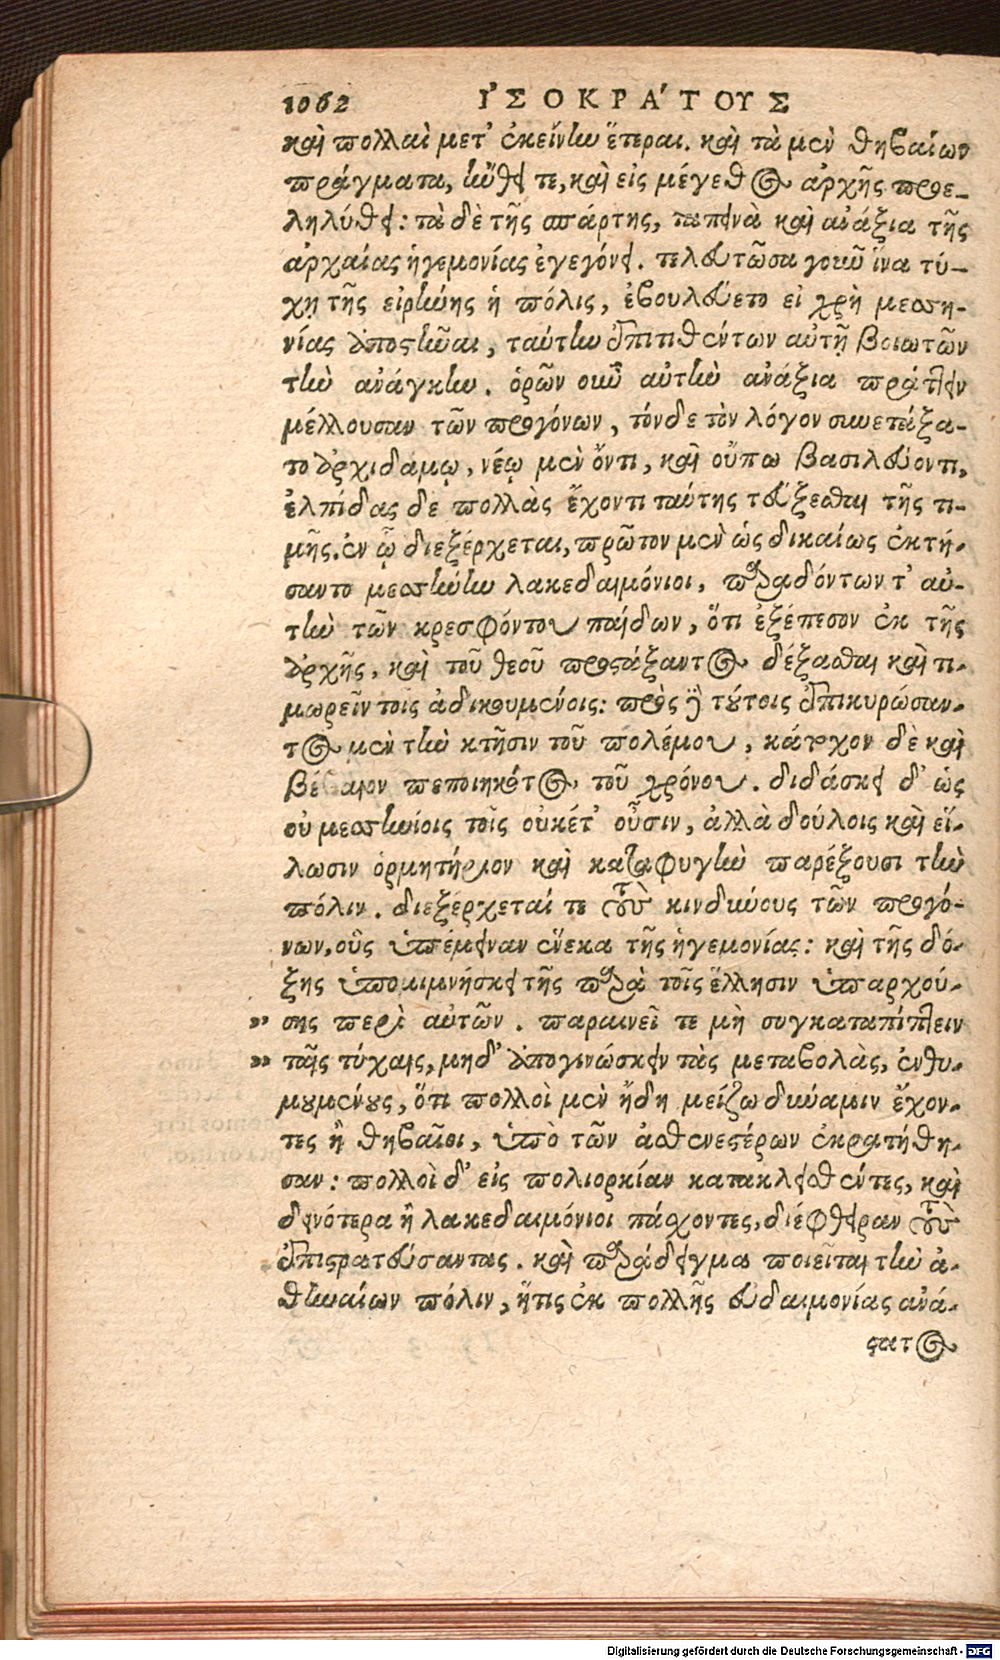 1062 ἸΣΟΚΡΑ΄ΤΟΥΣ
καὶ πολλαὶ μετ' ἐκείνην ἕτεραι. καὶ τὰ μὲν θηβαίων
πράγματα, ηὔθει τε, καὶ εἰς μέγεθος ἀρχῆς προε-
ληλύθει: τὰ δὲ τῆς σπάρτης, ταπεινὰ καὶ ἀνάξια τῆς
ἀρχαίας ἡγεμονίας ἐγεγόνει. τελευτῶσα γοιῶ ἵνα τύ-
χῃ τῆς εἰρήνης ἡ πόλις, ἐβουλεύετο εἰ χρὴ μεσση-
νίας ἀποστῆναι, ταύτην ἐπιτιθέντων αὐτῇ Βοιωτῶν
τὴν ἀνάγκην. ὁρῶν οὖν αὐτὴν ἀνάξια πράττειν
μέλλουσαν τῶν προγόνων, τόνδε τὸν λόγον συνετάξα-
το ἀρχιδάμῳ, νέῳ μὲν ὄντι, καὶ οὔπω βασιλεύοντι,
ἐλπίδας δε πολλὰς ἔχοντι ταύτης τεύξεσθαι τῆς τι-
μῆς. ἐν ᾧ διεξέρχεται, πρῶτον μὲν ὡς δικαίως ἐκτή-
σαντο μεσσήνην λακεδαιμόνιοι, παραδόντων τ' αὐ-
τὴν τῶν κρεσφόντου παίδων, ὅτι ἐξέπεσον ἐκ τῆς
ἀρχῆς, καὶ τοῦ θεοῦ προστάξαντος δέξασθαι καὶ τι-
μωρεῖν τοῖς ἀδικουμένοις: πρὸς δὲ τούτοις ἐπικυρώσαν-
τος μὲν τὴν κτῆσιν τοῦ πολέμου, κάρχον δὲ καὶ
βέβαιον πεποιηκότος τοῦ χρόνου. διδάσκει δ' ὡς
οὐ μεσσηνίοις τοῖς οὐκέτ' οὖσιν, ἀλλὰ δούλοις καὶ εἵ-
λωσιν ὁρμητήριον καὶ καταφυγὴν παρέξουσι τὴν
πόλιν. διεξέρχεταί τε τοὺς κινδύνους τῶν προγό-
νων, οὓς ὑπέμειναν ἕνεκα τῆς ἡγεμονίας: καὶ τῆς δό-
ξης ὑπομιμνήσκει τῆς παρὰ τοῖς ἕλλησιν ὑπαρχού-
" σης περὶ αὐτῶν. παραινεῖ τε μὴ συγκαταπίπτειν
" ταῖς τύχαις, μηδ' ἀπογινώσκειν τὰς μεταβολὰς, ἐνθυ-
μουμένους, ὅτι πολλοὶ μὲν ἤδη μείζω δύναμιν ἔχον-
τες ἢ θηβαῖοι, ὑπὸ τῶν ἀσθενεστέρων ἐκρατήθη-
σαν: πολλοὶ δ' εἰς πολιορκίαν κατακλεισθέντες, καὶ
δεινότερα ἢ λακεδαιμόνιοι πάσχοντες, διέφθειραν τοὺς
ἐπιστρατεύσαντας. καὶ παράδειγμα ποιεῖται τὴν ἀ-
θηναίων πόλιν, ἥτις ἐκ πολλῆς εὐδαιμονίας ἀνά-
στατος
Digitalisierung gefördert durch die Deutsche Forschungsgemeinschaft - DFG